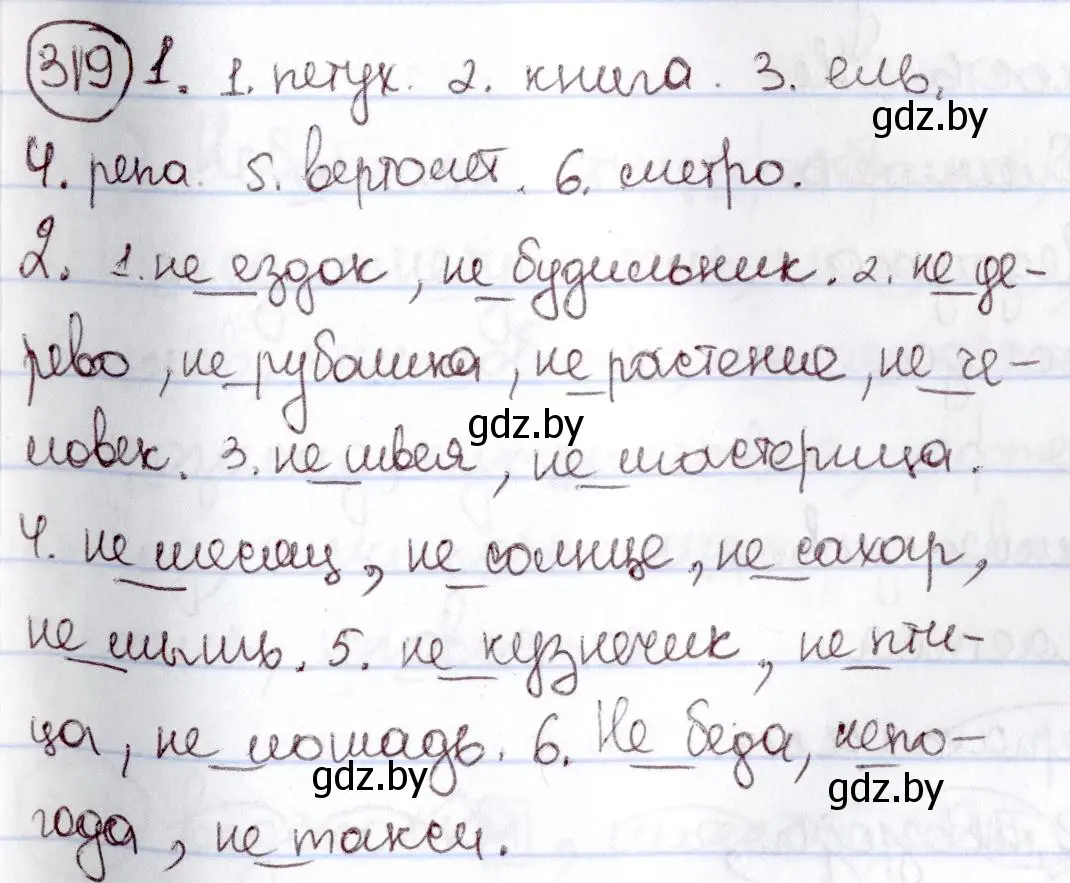 319 1. 1. петух. 2. книга. 3. ель,
gdz.by
4. репа. 5. вертолёт. 6. метро.
2. 1. не ездок, не будильник. 2. не де-
рево, не рубашка, не растение, не че-
gdz.by
ловек. 3. не швея, не мастерица.
4. не месяц, не солнце, не сахар,
не мышь. 5. не кузнечик, не пти-
ца, не лошадь. 6. Не беда, непо-
gdz.by gdz.by
года, не такси.